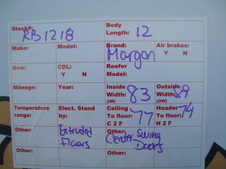 Stock#: RB1218 Body Length: 12
Make: Model: Brand: Morgan Air brakes: Y N
Gvw: CDL: Y N Reefer Model:
Mileage: Year: Inside Width: 83 Outside Width: 89
Temperature range: Elect. Stand by: Ceiling To floor: 77 C 2 F Header To floor: 74 H 2 F
Other: Extruded Floors Other: Center Swing Doors Other: